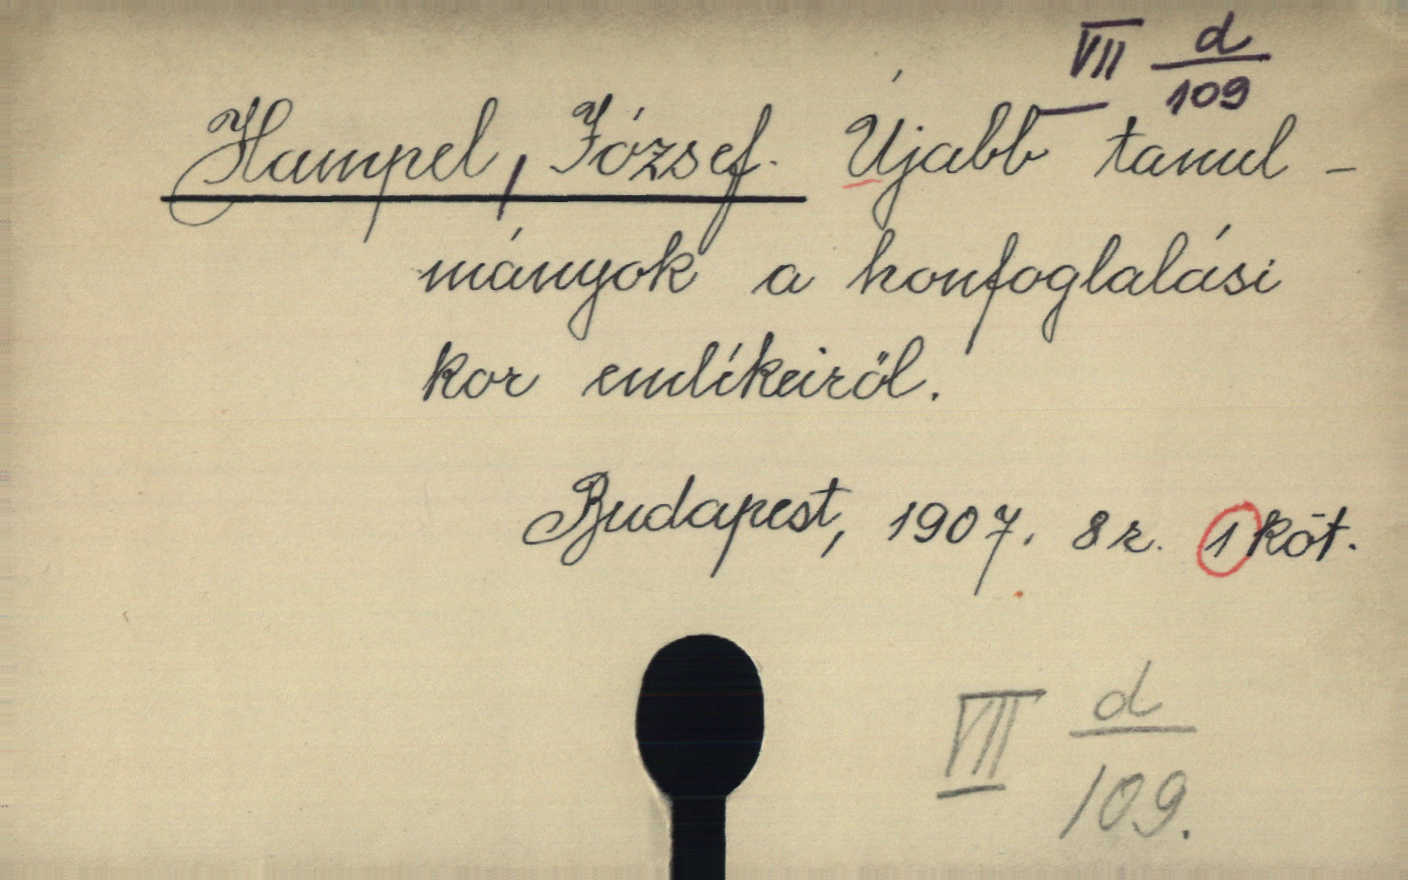 VII d/109
Hampel, József. Újabb tanul-
mányok a honfoglalási
kor emlékeiről.
Budapest, 1907. 8r. 1 köt.
VII d/109.